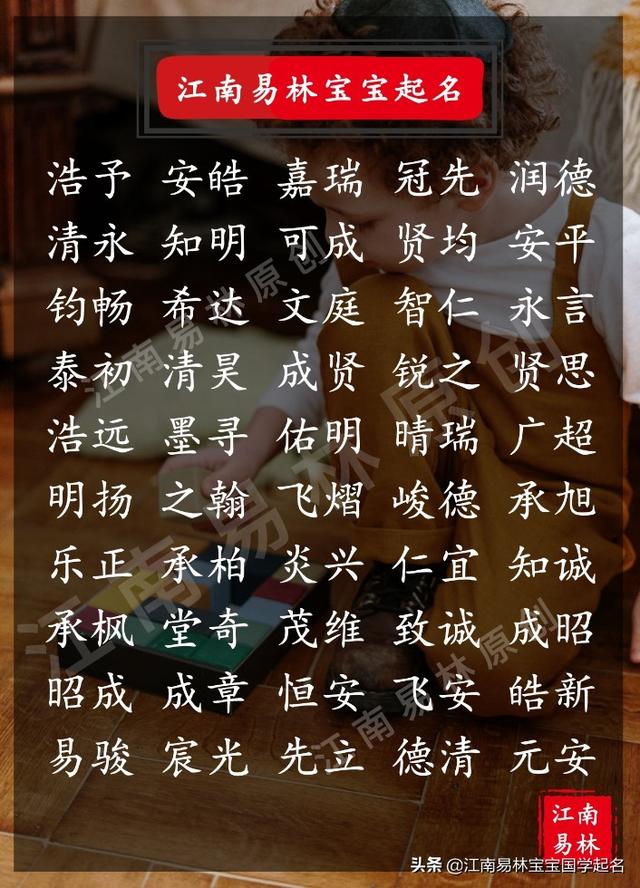 江南易林宝宝起名
浩予 安皓 嘉瑞 冠先 润德
清永 知明 可成 贤均 安平
钧畅 希达 文庭 智仁 永言
泰初 清昊 成贤 锐之 贤思
浩远 墨寻 佑明 晴瑞 广超
明扬 之翰 飞熠 峻德 承旭
乐正 承柏 炎兴 仁宜 知诚
承枫 堂奇 茂维 致诚 成昭
昭成 成章 恒安 飞安 皓新
易骏 宸光 先立 德清 元安
江南易林原创
江南易林原创
江南易林原创
江南
易林
头条 @江南易林宝宝国学起名